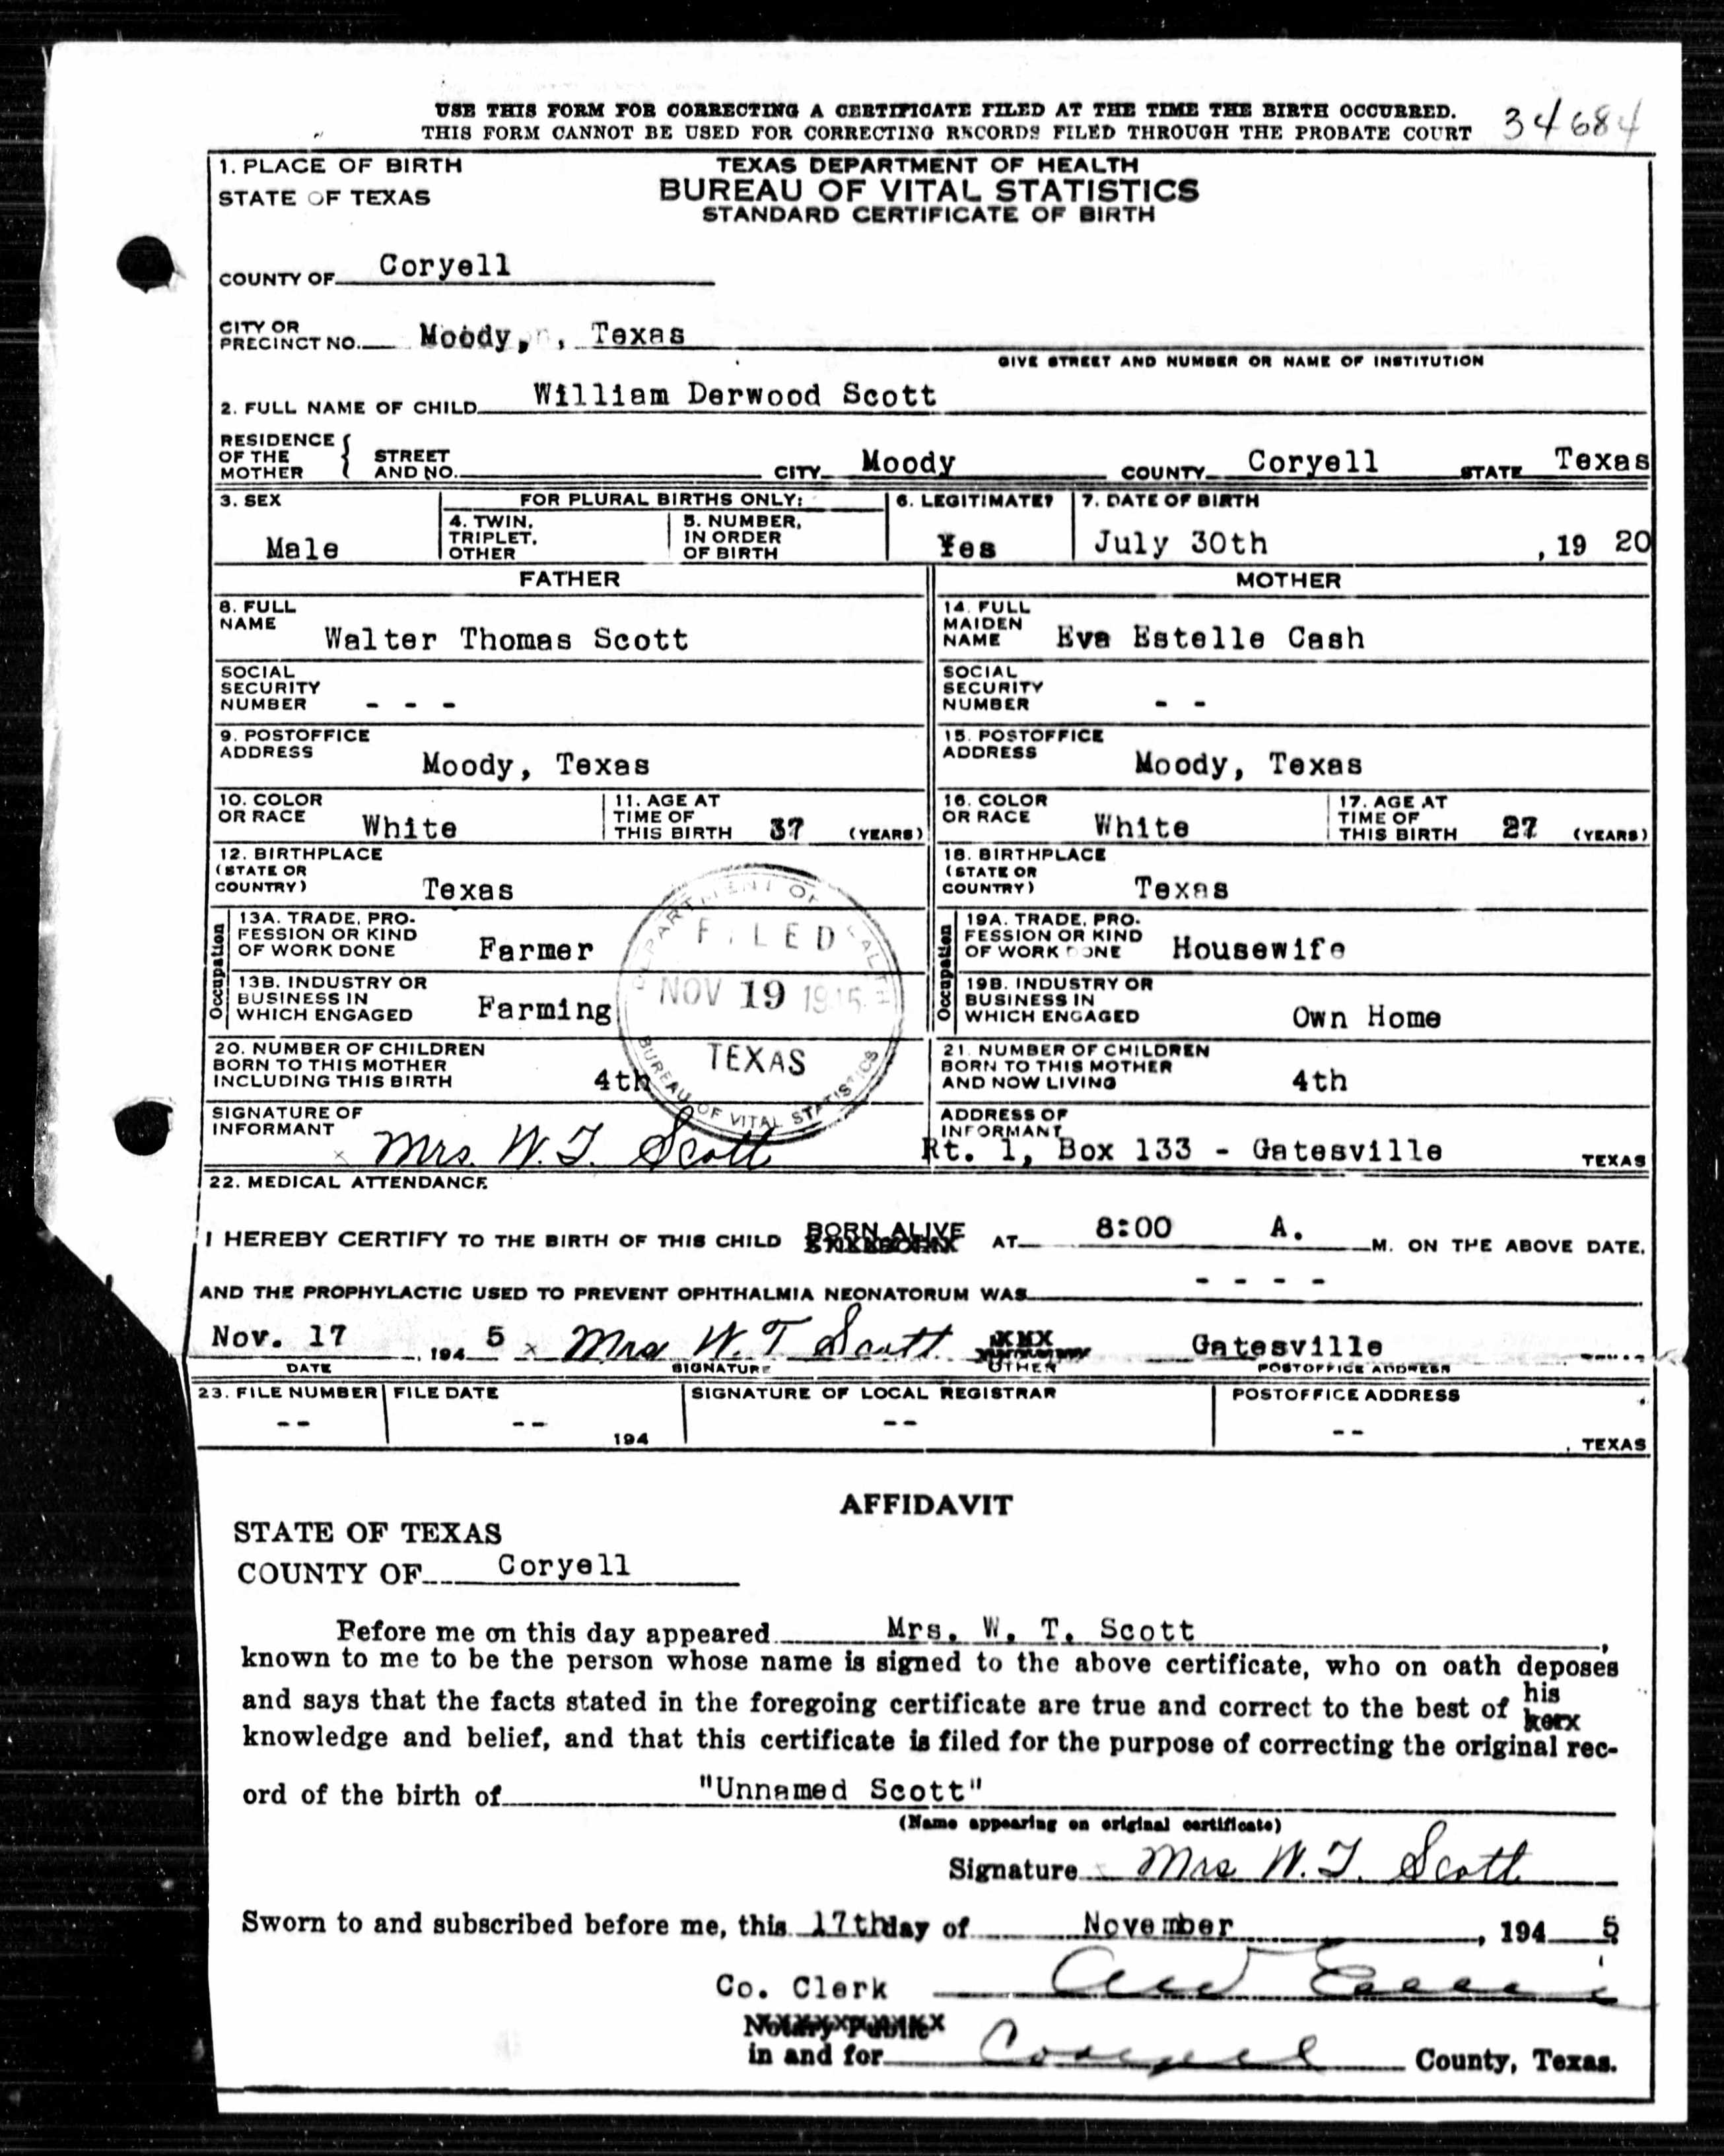 USE THIS FORM FOR CORRECTING A CERTIFICATE FILED AT THE TIME THE BIRTH OCCURRED.
THIS FORM CANNOT BE USED FOR CORRECTING RECORDS FILED THROUGH THE PROBATE COURT
34684
1. PLACE OF BIRTH
STATE OF TEXAS
TEXAS DEPARTMENT OF HEALTH
BUREAU OF VITAL STATISTICS
STANDARD CERTIFICATE OF BIRTH
COUNTY OF Coryell
CITY OR
PRECINCT NO. Moody, , Texas
GIVE STREET AND NUMBER OR NAME OF INSTITUTION
2. FULL NAME OF CHILD William Derwood Scott
RESIDENCE
OF THE
MOTHER
STREET
AND NO. CITY Moody COUNTY Coryell STATE Texas
3. SEX
Male
FOR PLURAL BIRTHS ONLY:
4. TWIN,
TRIPLET,
OTHER
5. NUMBER,
IN ORDER
OF BIRTH
6. LEGITIMATE?
Yes
7. DATE OF BIRTH
July 30th , 19 20
FATHER
MOTHER
8. FULL
NAME Walter Thomas Scott
14. FULL
MAIDEN
NAME Eva Estelle Cash
SOCIAL
SECURITY
NUMBER - - -
SOCIAL
SECURITY
NUMBER - -
9. POSTOFFICE
ADDRESS Moody, Texas
15. POSTOFFICE
ADDRESS Moody, Texas
10. COLOR
OR RACE White
11. AGE AT
TIME OF
THIS BIRTH 37 (YEARS)
16. COLOR
OR RACE White
17. AGE AT
TIME OF
THIS BIRTH 27 (YEARS)
12. BIRTHPLACE
(STATE OR
COUNTRY) Texas
18. BIRTHPLACE
(STATE OR
COUNTRY) Texas
Occupation
13A. TRADE, PRO-
FESSION OR KIND
OF WORK DONE Farmer
13B. INDUSTRY OR
BUSINESS IN
WHICH ENGAGED Farming
Occupation
19A. TRADE, PRO-
FESSION OR KIND
OF WORK DONE Housewife
19B. INDUSTRY OR
BUSINESS IN
WHICH ENGAGED Own Home
DEPARTMENT OF HEALTH
FILED
NOV 19 1945
TEXAS
BUREAU OF VITAL STATISTICS
20. NUMBER OF CHILDREN
BORN TO THIS MOTHER
INCLUDING THIS BIRTH 4th
21. NUMBER OF CHILDREN
BORN TO THIS MOTHER
AND NOW LIVING 4th
SIGNATURE OF
INFORMANT x Mrs. W. T. Scott
ADDRESS OF
INFORMANT
Rt. 1, Box 133 - Gatesville TEXAS
22. MEDICAL ATTENDANCE
I HEREBY CERTIFY TO THE BIRTH OF THIS CHILD BORN ALIVE AT 8:00 A. M. ON THE ABOVE DATE,
AND THE PROPHYLACTIC USED TO PREVENT OPHTHALMIA NEONATORUM WAS - - - -
Nov. 17 , 194 5 x Mrs W. T Scott XMX Gatesville
DATE SIGNATURE OTHER POSTOFFICE ADDRESS
23. FILE NUMBER
--
FILE DATE
-- 194
SIGNATURE OF LOCAL REGISTRAR
--
POSTOFFICE ADDRESS
-- , TEXAS
AFFIDAVIT
STATE OF TEXAS
COUNTY OF Coryell
Before me on this day appeared Mrs. W. T. Scott ,
known to me to be the person whose name is signed to the above certificate, who on oath deposes
and says that the facts stated in the foregoing certificate are true and correct to the best of his
herx
knowledge and belief, and that this certificate is filed for the purpose of correcting the original rec-
ord of the birth of "Unnamed Scott"
(Name appearing on original certificate)
Signature Mrs W. T. Scott
Sworn to and subscribed before me, this 17th day of November , 194 5
Co. Clerk
Notary Public
in and for Coryell County, Texas.